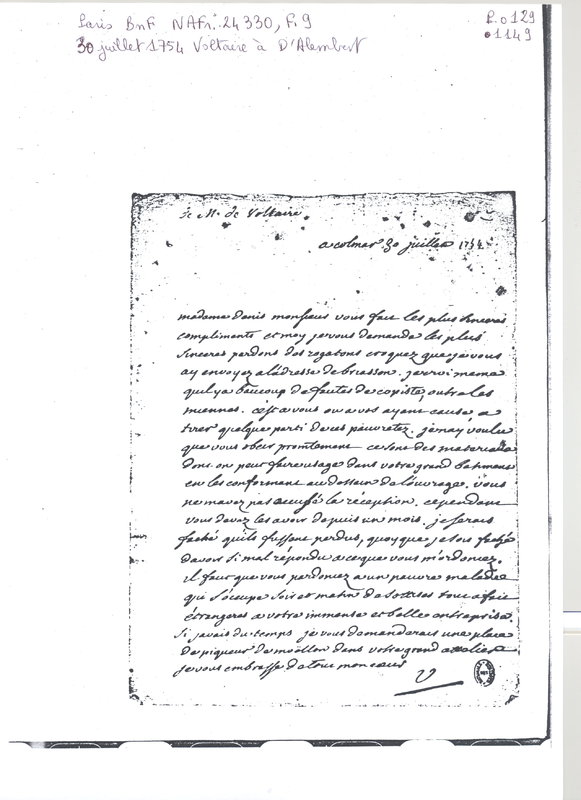 Paris BnF NAFr. 24330, f. 9
30 juillet 1754 Voltaire à D'Alembert
P.0129
1149
de Mr. de Voltaire
a colmar 30 juillet 1754
madame denis monsieur vous fait les plus sinceres
compliments et moy je vous demande les plus
sinceres pardons des rogatons croquez que je vous
ay envoyez a ladresse de briasson. je croi meme
quil y a baucoup de fautes de copiste, outre les
miennes. cest a vous ou a vos ayant cause a
tirer quelque parti de ces pauvretez. je nay voulu
que vous obeir promtement ce sont des materiaux
dont on peut faire usage dans votre grand batiment
en les conformant au dessein de l'ouvrage. vous
ne mavez pas accusé la réception. cependant
vous devez les avoir depuis un mois. je serais
faché quils fussent perdus, quoyque je sois faché
davoir si mal répondu a ce que vous m'ordoniez.
il faut que vous pardoniez a un pauvre malade
qui s'occupe soir et matin de sottises tout a fait
étrangeres a votre immense et belle entreprise.
Si javais du temps je vous demanderais une place
de piqueur de moëllon dans votre grand attelier
je vous embrasse de tout mon coeur
V